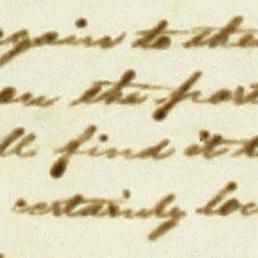 again to the
on the part
ll find it t
certainly loc